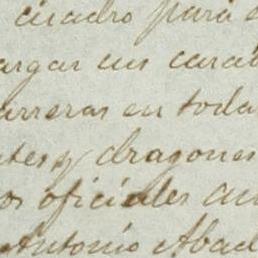 cuadro para
argar sus carab
arreras en toda
ntes y dragones
os oficiales
Antonio Abad